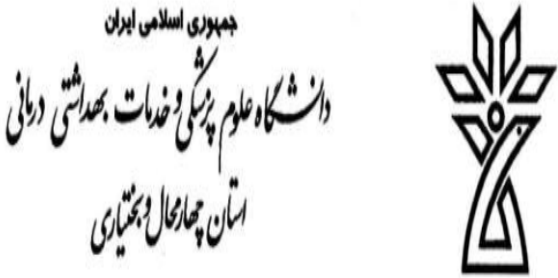 جمهوری اسلامی ایران
دانشگاه علوم پزشکی و خدمات بهداشتی درمانی
استان چهارمحال و بختیاری